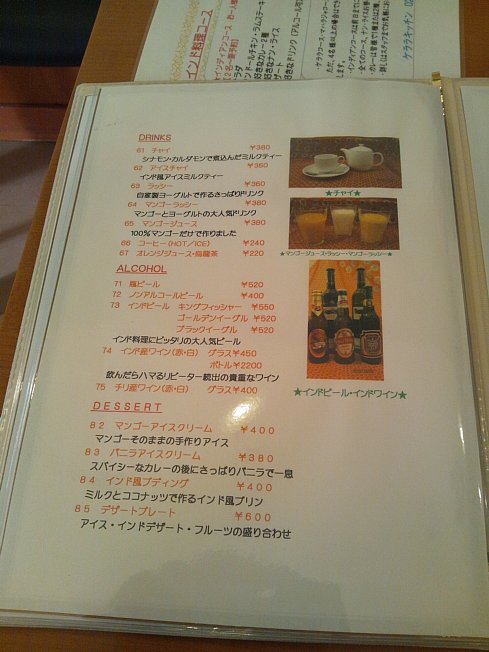 インド料理コース
DRINKS
61 チャイ ￥360
シナモン・カルダモンで煮込んだミルクティー
62 アイスチャイ ￥360
インド風アイスミルクティー
63 ラッシー ￥360
自家製ヨーグルトで作るさっぱりドリンク
64 マンゴーラッシー ￥380
マンゴーとヨーグルトの大人気ドリンク
65 マンゴージュース ￥380
100%マンゴーだけで作りました
66 コーヒー(HOT/ICE) ￥240
67 オレンジジュース・烏龍茶 ￥220
★チャイ★
★マンゴージュース・ラッシー・マンゴーラッシー★
ALCOHOL
71 瓶ビール ￥520
72 ノンアルコールビール ￥400
73 インドビール キングフィッシャー ￥550
ゴールデンイーグル ￥520
ブラックイーグル ￥520
インド料理にピッタリの大人気ビール
74 インド産ワイン(赤・白) グラス￥450
ボトル￥2200
飲んだらハマるリピーター続出の貴重なワイン
75 チリ産ワイン(赤・白) グラス￥400
★インドビール・インドワイン★
DESSERT
82 マンゴーアイスクリーム ￥400
マンゴーそのままの手作りアイス
83 バニラアイスクリーム ￥380
スパイシーなカレーの後にさっぱりバニラで一息
84 インド風プディング ￥400
ミルクとココナッツで作るインド風プリン
85 デザートプレート ￥600
アイス・インドデザート・フルーツの盛り合わせ